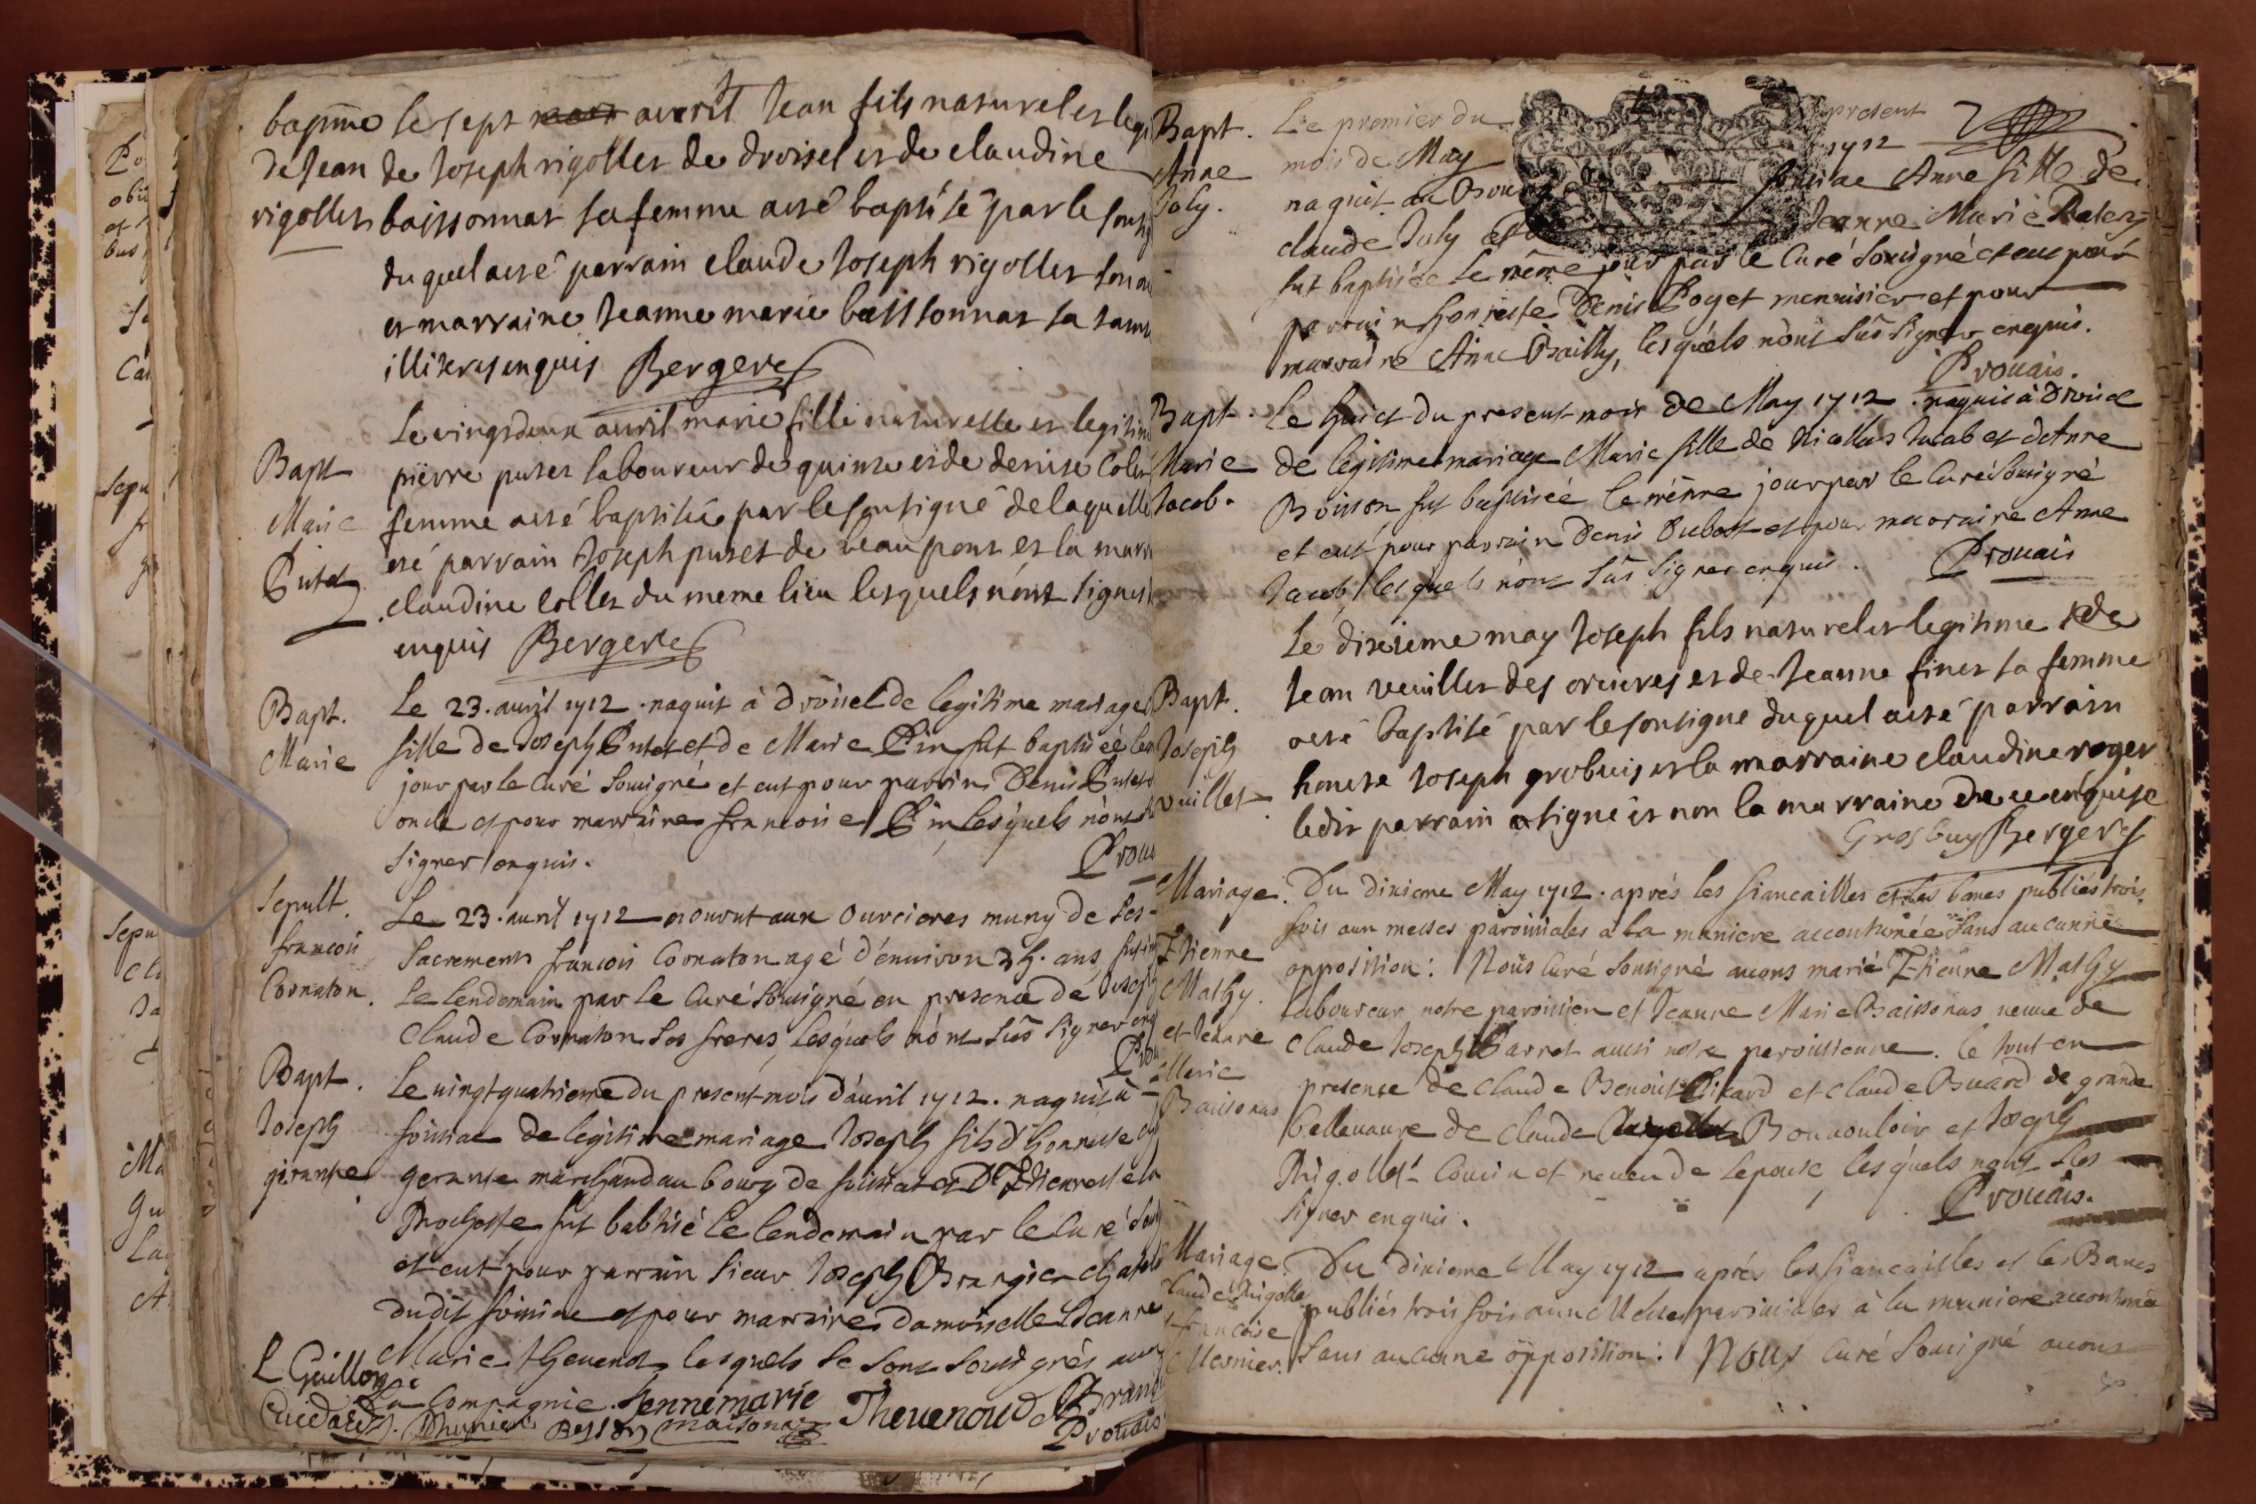 bapme le sept mars avvril Jean fils naturel et legi
de Jean de Joseph rigollet de droisel et de claudine
rigollet boissonnat sa femme a esté baptisé par le sous
du quel a esté parrain claude Joseph rigollet son
et marraine Jeanne marie boissonnat sa tant
illiteres enquis Bergere
Bapt
Marie
Putet
Le vingt deux avvril marie fille naturelle et legitim
pierre putet laboureur de et de denise
femme a esté baptisée par le sousigné de laquelle
esté parrain Joseph putet de beaupont et la marr
claudine collet du meme lieu lesquels n'ont signés
enquis Bergere
Bapt.
Marie
Le 23. avril 1712. naquit à Droisel de legitime mariage
fille de Joseph Putet et de Marie Pin fut baptisée le
jour par le Curé sousigné et eut pour parrin Denis Putet
oncle et pour marraine francoise Pin lesquels n'ont
signer enquis.
Prouais
Sepult.
francois
Cornaton.
Le 23. avril 1712 mourut aux Ourcieres muny de ses
Sacrements francois Cornaton agé d'environ ans,
Le lendemain par le Curé sousigné en presence de Joseph
Claude Cornaton ses freres, lesquels n'ont sûs signer enq
Prou
Bapt.
Joseph
geranse
Le vingt quatrieme du present mois d'avril 1712. naquit à
foissiac de legitime mariage Joseph fils d'honneste
geranse marchand au bourg de foissiac et d'Etiennette
Rochette, fut babtisé le lendemain par le Curé sous
et eut pour parrain sieur Joseph Brangier
dudit foissiac et pour marraine damoiselle Jeanne
Marie Thevenot, lesquels se sont sousignés avec
L Guillon
La Compagnie. Jennemarie Thevenoud Brang
Besson Maisona
Prouais
Bapt.
Anne
Joly.
Le premier du present
mois de May 1712
naquit au Bourg foissiac Anne fille de
claude Joly et Jeanne Marie
fut baptisée le même jour par le Curé sousigné et eut pour
parrain honneste Denis Poget menuisier et pour
marraine Anne Bailly, lesquels n'ont sûs signer enquis.
Prouais.
Bapt.
Marie
Jacob.
Le huict du present mois de May 1712. naquit à Droisel
de legitime mariage Marie fille de Nicollas Jacob et d'Anne
Boisson fut baptisée le même jour par le Curé sousigné
et eut pour parrain Denis Dubost et pour marraine Anne
Jacob, lesquels n'ont sûs signer enquis. Prouais
Bapt.
Joseph
vuillet
Le dixieme may Joseph fils naturel et legitime de
Jean veuillet des orcieres et de Jeanne finet sa femme
a esté baptisé par le sousigné duquel a esté parrain
honeste Joseph grobuis et la marraine claudine roger
ledit parrain a signé et non la marraine de ce enquise
Grosbuy Bergere
Mariage.
Etienne
Mathy.
et Jeanne
Marie
Baissonas
Du dixieme May 1712. aprés les fiancailles et les bancs publiés trois
fois aux messes paroissiales a la maniere accoutumée sans aucunne
opposition: Nous Curé sousigné avons marié Etienne Mathy
laboureur notre paroissien et Jeanne Marie Baissonas veuve de
Claude Joseph Barret aussi notre paroissienne. le tout en
presence de Claude Benoist Picard et Claude Buard de grande
bellevavre de Claude Bonvouloir et Joseph
Rigollet Cousin et neveu de lepouse, lesquels nont sûs
signer enquis. Prouais.
Mariage
Claude Rigollet
francoise
Mesnier.
Du dixieme May 1712 aprés les fiancailles et les Bancs
publiés trois fois aux Messes parroissiales à la maniere accoutumée
sans aucunne opposition: Nous Curé sousigné avons